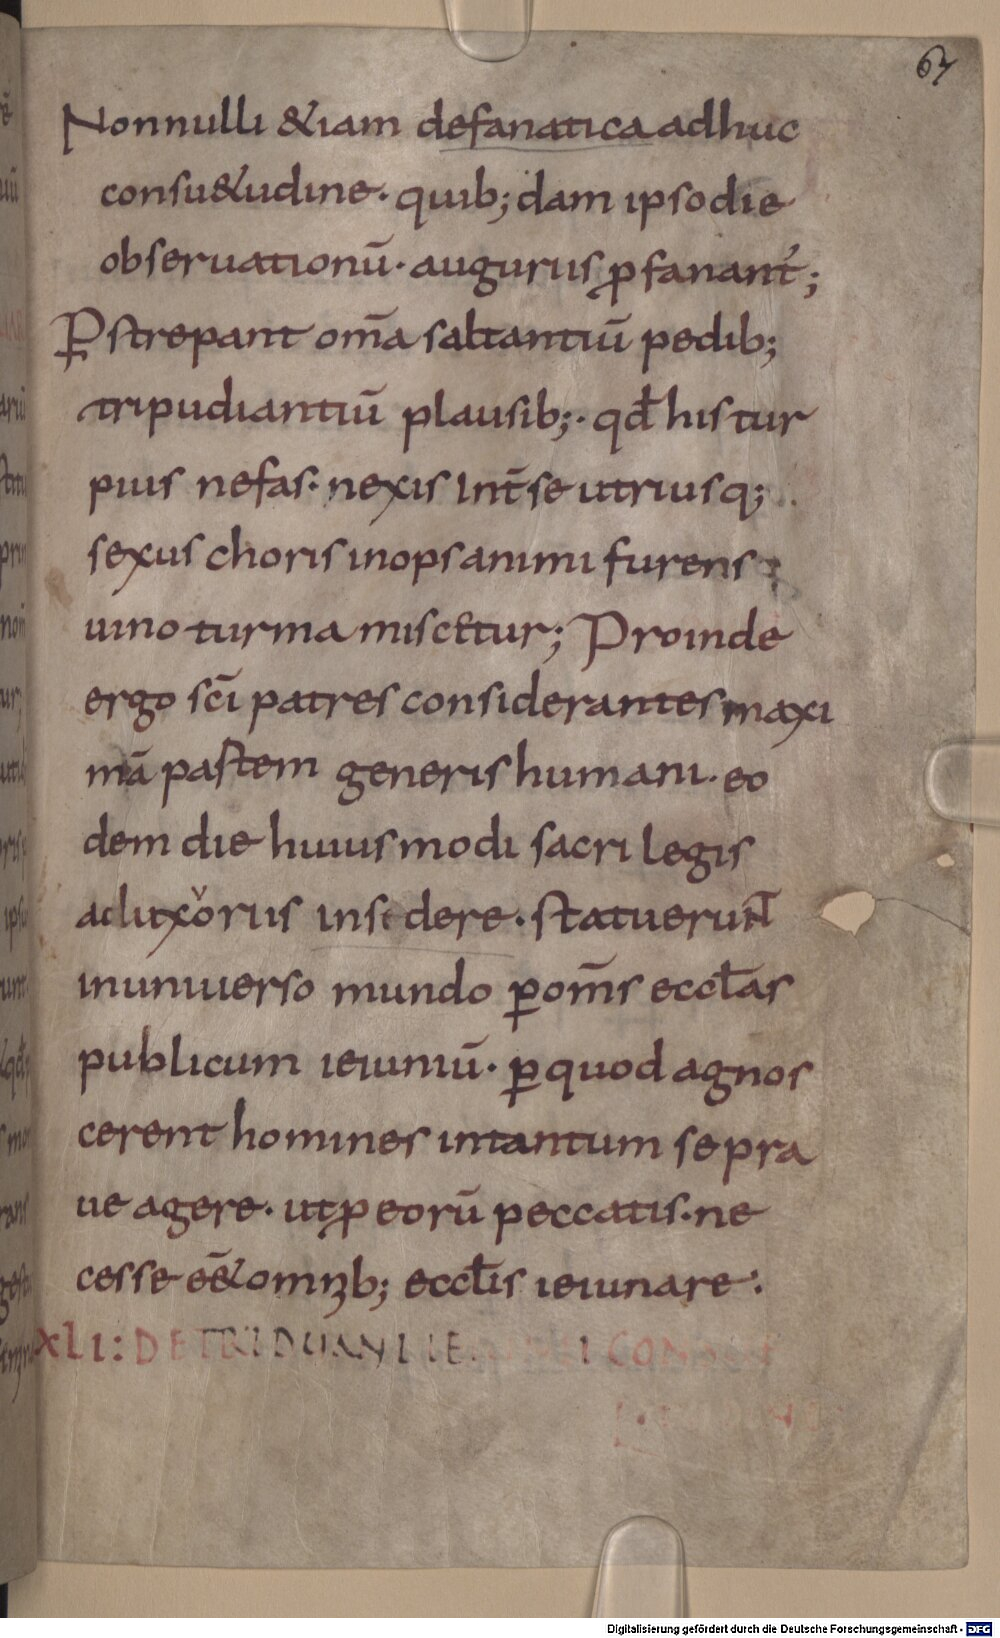 67
Nonnulli &iam defanatica adhuc
consu&udine· quib; dam ipso die
obseruationū· auguriis ꝓfanant̉;
Pstrepant om̄a saltantiū pedib;
tripudiantiū plausib;· qđ his tur
puis nefas· nexis Int̄se utriusq;
sexus choris inops animi furens
uino turma miscetur; Proinde
ergo sc̄i patres considerantes maxi
mā pastem generis humani· eo
dem die huiusmodi sacri legis
ad luxoriis dere· statuerunt
in uniuerso mundo ꝑ om̄s ecclas
publicum ieiuniū· ꝑ quod agnos
cerent homines intantum se pra
ue agere· ut ꝓ eorū peccatis· ne
cesse eē& omnib; ecclis ieiunare·
XLI: DE TRIDUANI IE I CON
Digitalisierung gefördert durch die Deutsche Forschungsgemeinschaft - DFG